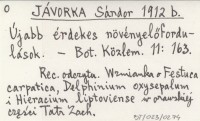 o JÁVORKA Sándor 1912 b.
Újabb érdekes növényelőfordu-
lások. - Bot. Közlem. 11: 163.
Rec. odczytu. Wzmianka o Festuca
carpatica, Delphinium oxysepalum
i Hieracium liptoviense w orawskiej
części Tatr Zach.